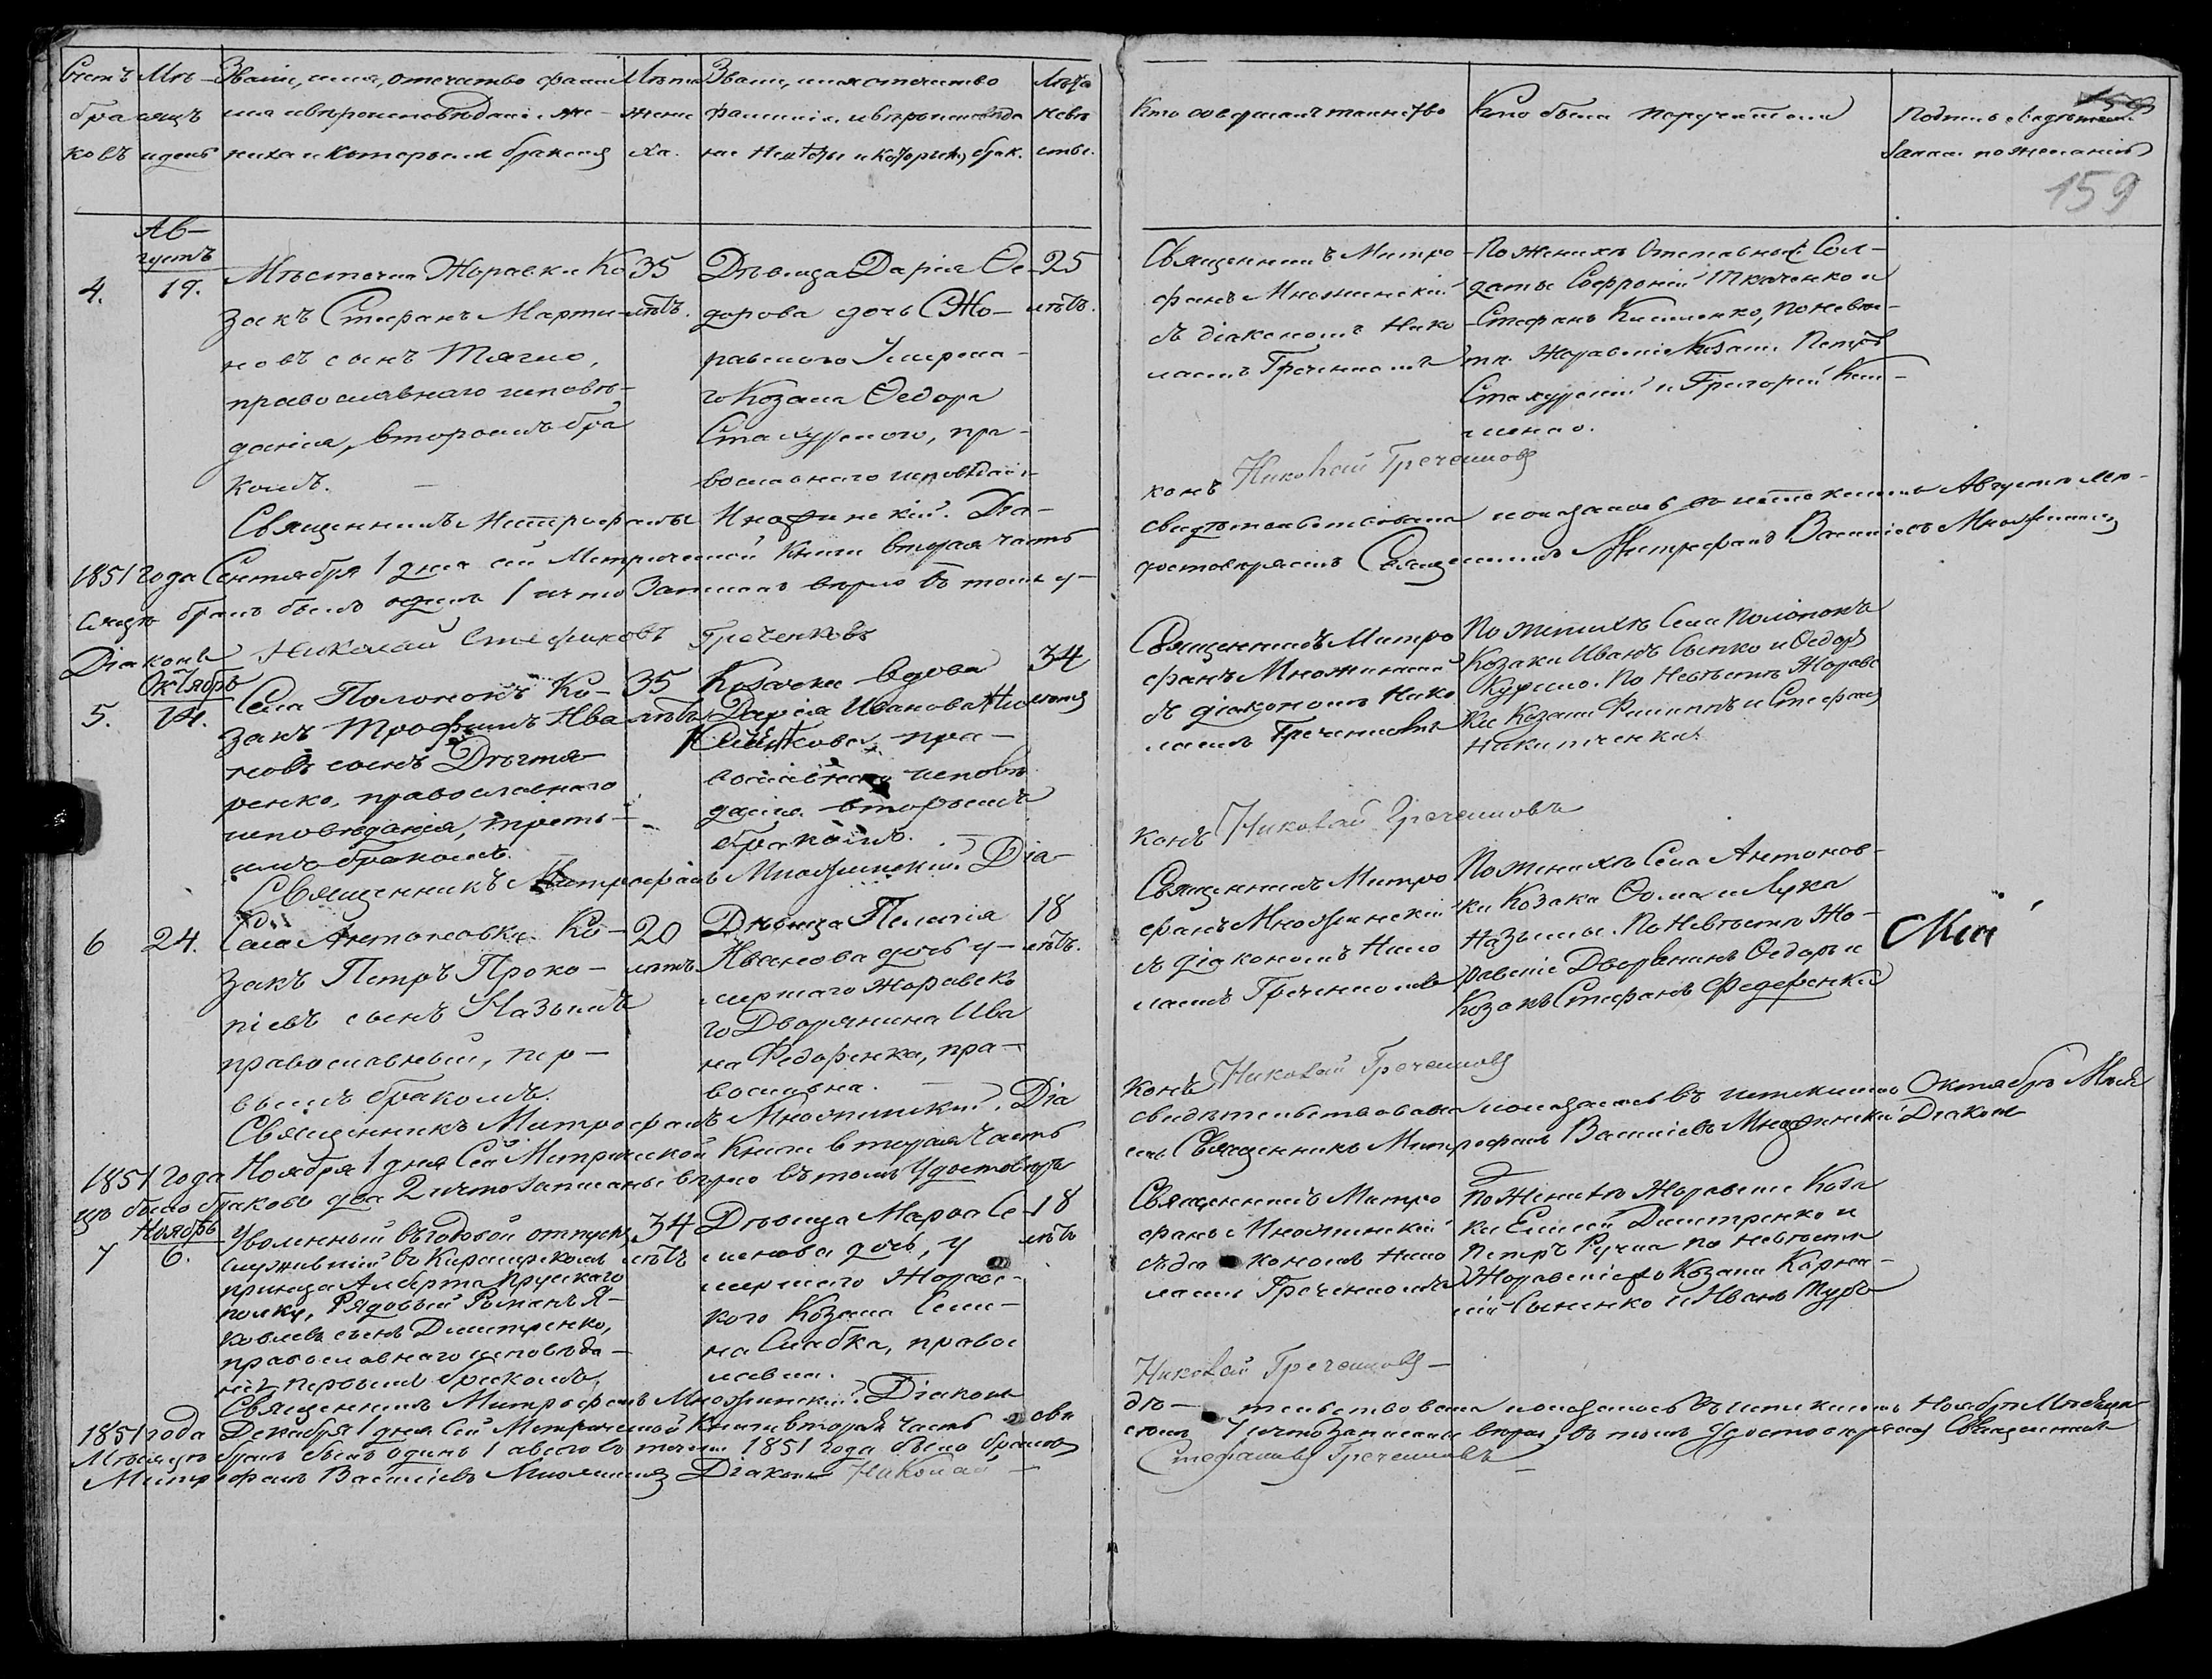 Счетъ
бра
ковъ
Мѣ-
сяцъ
и день
Званiе, имя, отечество фами
лiя и вѣроисповѣданiе же-
ниха и которымъ бракомъ
Лѣта
жени
ха.
Званiе, имя отечество
фамилiя, и вѣроисповѣда
нiе невѣсты и которымъ брак.
Лѣта
невѣ
сты.
Кто совершалъ таинство
Кто были поручители
Подпись свидѣтелей
записи по желанiю
159
4.
Ав-
густъ
19.
Мѣстечка Журавки Ко
закъ Стефанъ Марти-
новъ сынъ Тягло,
православнаго исповѣ-
данiя, вторымъ бра
комъ.
35
лѣтъ.
Дѣвица Дарiя Ѳе-
дорова дочь Жу-
равского умерша-
го Козака Ѳедора
Стахурского, пра-
вославного исповѣданiя
25
лѣтъ.
Священникъ Митро
фанъ Множинскiй
съ дiакономъ Нико
лаемъ Греченковымъ
По женихѣ Отставный Сол-
датъ Софронiй Ткаченко и
Стефанъ Кисиленко, по невѣ-
стѣ Журавскiе Козаки Петръ
Стахурскiй и Григорiй
Священникъ Митрофанъ Множинскiй. Дiа-
конъ Николай Греченковъ
1851 года Сентября 1 дня сей Метрической Книги вторая часть
свидѣтельствована и оказалось въ истекшемъ Августѣ мѣ-
сяцѣ бракъ былъ одинъ 1 и что записанъ вѣрно въ томъ у-
достовѣряемъ Священникъ Митрофанъ Василiевъ Множинскiй
Дiаконъ Николай Стефановъ Греченковъ
5.
Октябрь
14.
Села Полонокъ Ко-
закъ Трофимъ Ива
новъ сынъ Дегтя-
ренко, православного
исповѣданiя, треть-
имъ бракомъ.
35
лѣтъ
Козачка вдова
Дарiя Иванова Ни
пра-
вославного исповѣ
данiя вторымъ
бракомъ.
34
лѣтъ
Священникъ Митро
фанъ Множинскiй
съ дiакономъ Нико
лаемъ Греченковымъ
По женихѣ Села Полонокъ
Козаки Иванъ Сыпко и Ѳедоръ
Курило. По невѣстѣ Журав
ки Козаки Филиппъ и Стефанъ
Никитченки.
Священникъ Митрофанъ Множинскiй Дiа-
конъ Николай Греченковъ
6
24.
Села Антоновки Ко-
закъ Петръ Проко-
пiевъ сынъ Назымъ
православный, пер-
вымъ бракомъ.
20
лѣтъ
Дѣвица Пелагiя
Иванова дочь у-
мершаго Журавско
го Дворянина Ива
на Федоренка, пра-
вославна.
18
лѣтъ.
Священникъ Митро
фанъ Множинскiй
съ дiакономъ Нико
лаемъ Греченковымъ
По женихѣ Села Антонов-
ки Козаки Ѳома и Лука
Назымы. По Невѣстѣ Жу-
равскiе Дворянинъ Ѳедоръ и
Козакъ Стефанъ Федоренки
Священникъ Митрофанъ Множинскiй. Дiа
конъ Николай Греченковъ
1851 года Ноября 1 дня Сей Метрической Книги вторая часть
свидѣтельствована и оказалось въ истекшемъ Октябрѣ Мѣся
цѣ было браковъ два 2 и что записаны вѣрно въ томъ Удостовѣря
емъ Священникъ Митрофанъ Василiевъ Множинскiй Дiаконъ
7
Ноябрь
6.
Уволенный въ годовой отпускъ
служившiй въ Кирасирскомъ
принца Алберта Прускаго
полку, Рядовый Романъ Я-
ковлевъ сынъ Дмитренко,
православнаго исповѣда-
нiя первымъ бракомъ,
34
лѣтъ
Дѣвица Марѳа Се-
менова дочь, у
мершего Журавс-
кого Козака Семе-
на Слабка, правос
лавна.
18
лѣтъ
Священникъ Митро
фанъ Множинскiй
съ дiакономъ Нико
лаемъ Греченковымъ
По Женихѣ Журавскiе Коза
ки Елисей Дмитренко и
Петръ Ручка по невѣстѣ
Журавскiе Козаки Карни-
лiй Сыненко и Иванъ
Священникъ Митрофанъ Множинскiй. Дiаконъ
Николай Греченковъ
1851 года Декабря 1 дня Сей Метрической Книги вторая часть сви
дѣтельствована и оказалось въ истекшемъ Ноябрѣ Мѣсяцѣ
Мѣсяцѣ бракъ былъ одинъ 1 а всего въ теченiи 1851 года было браковъ
семь 7 и что записаны вѣрно, въ томъ Удостовѣряемъ Священникъ
Митрофанъ Василiевъ Множинскiй Дiаконъ Николай
Стефановъ Греченковъ